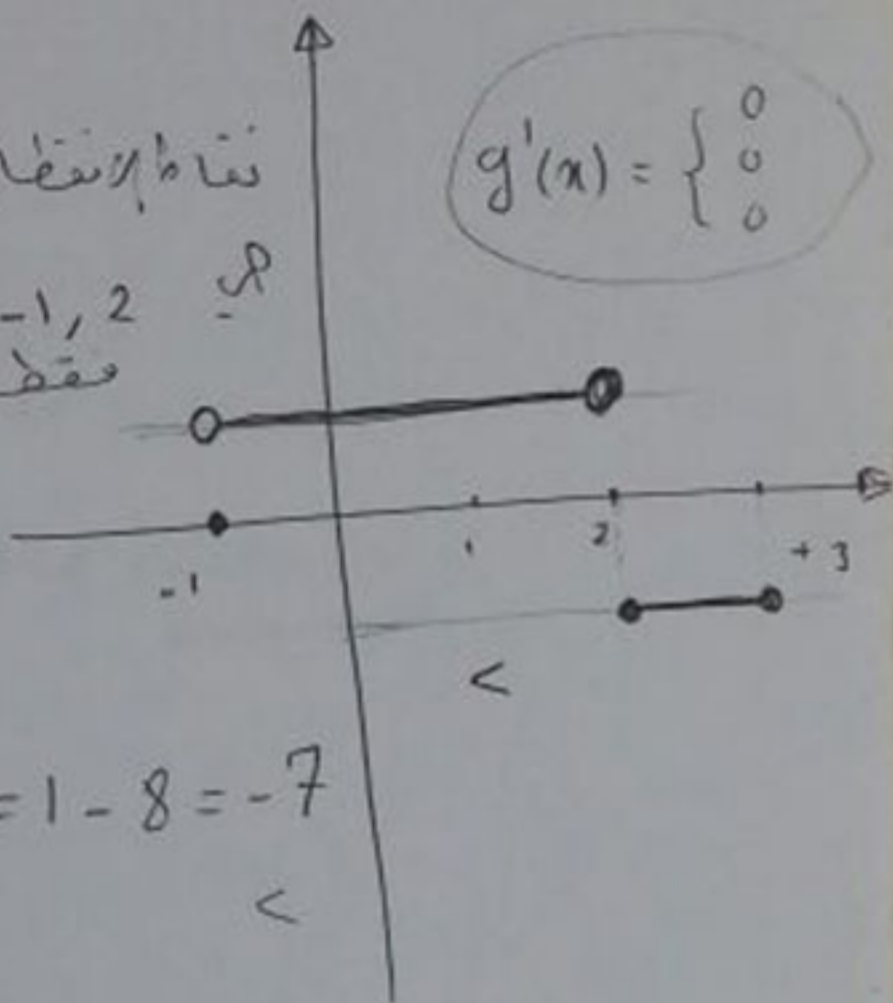 نقاط الانقطا
g'(x) = { 0
0
0
هي -1, 2
فقط
-1
1
2
+3
<
= 1 - 8 = -7
<